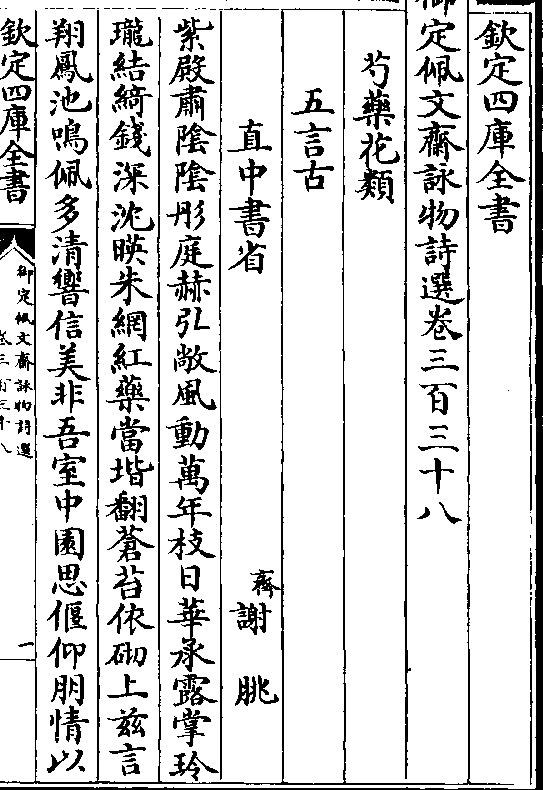 欽定四庫全書
御定佩文齋詠物詩選卷三百三十八
芍藥花類
五言古
直中書省
齊謝朓
紫殿肅陰陰彤庭赫弘敞風動萬年枝日華承露掌玲
瓏結綺錢深沈映朱網紅藥當堦翻蒼苔依砌上兹言
翔鳳池鳴佩多清響信美非吾室中園思偃仰朋情以
欽定四庫全書
御定佩文齋詠物詩選
卷三百三十八
一